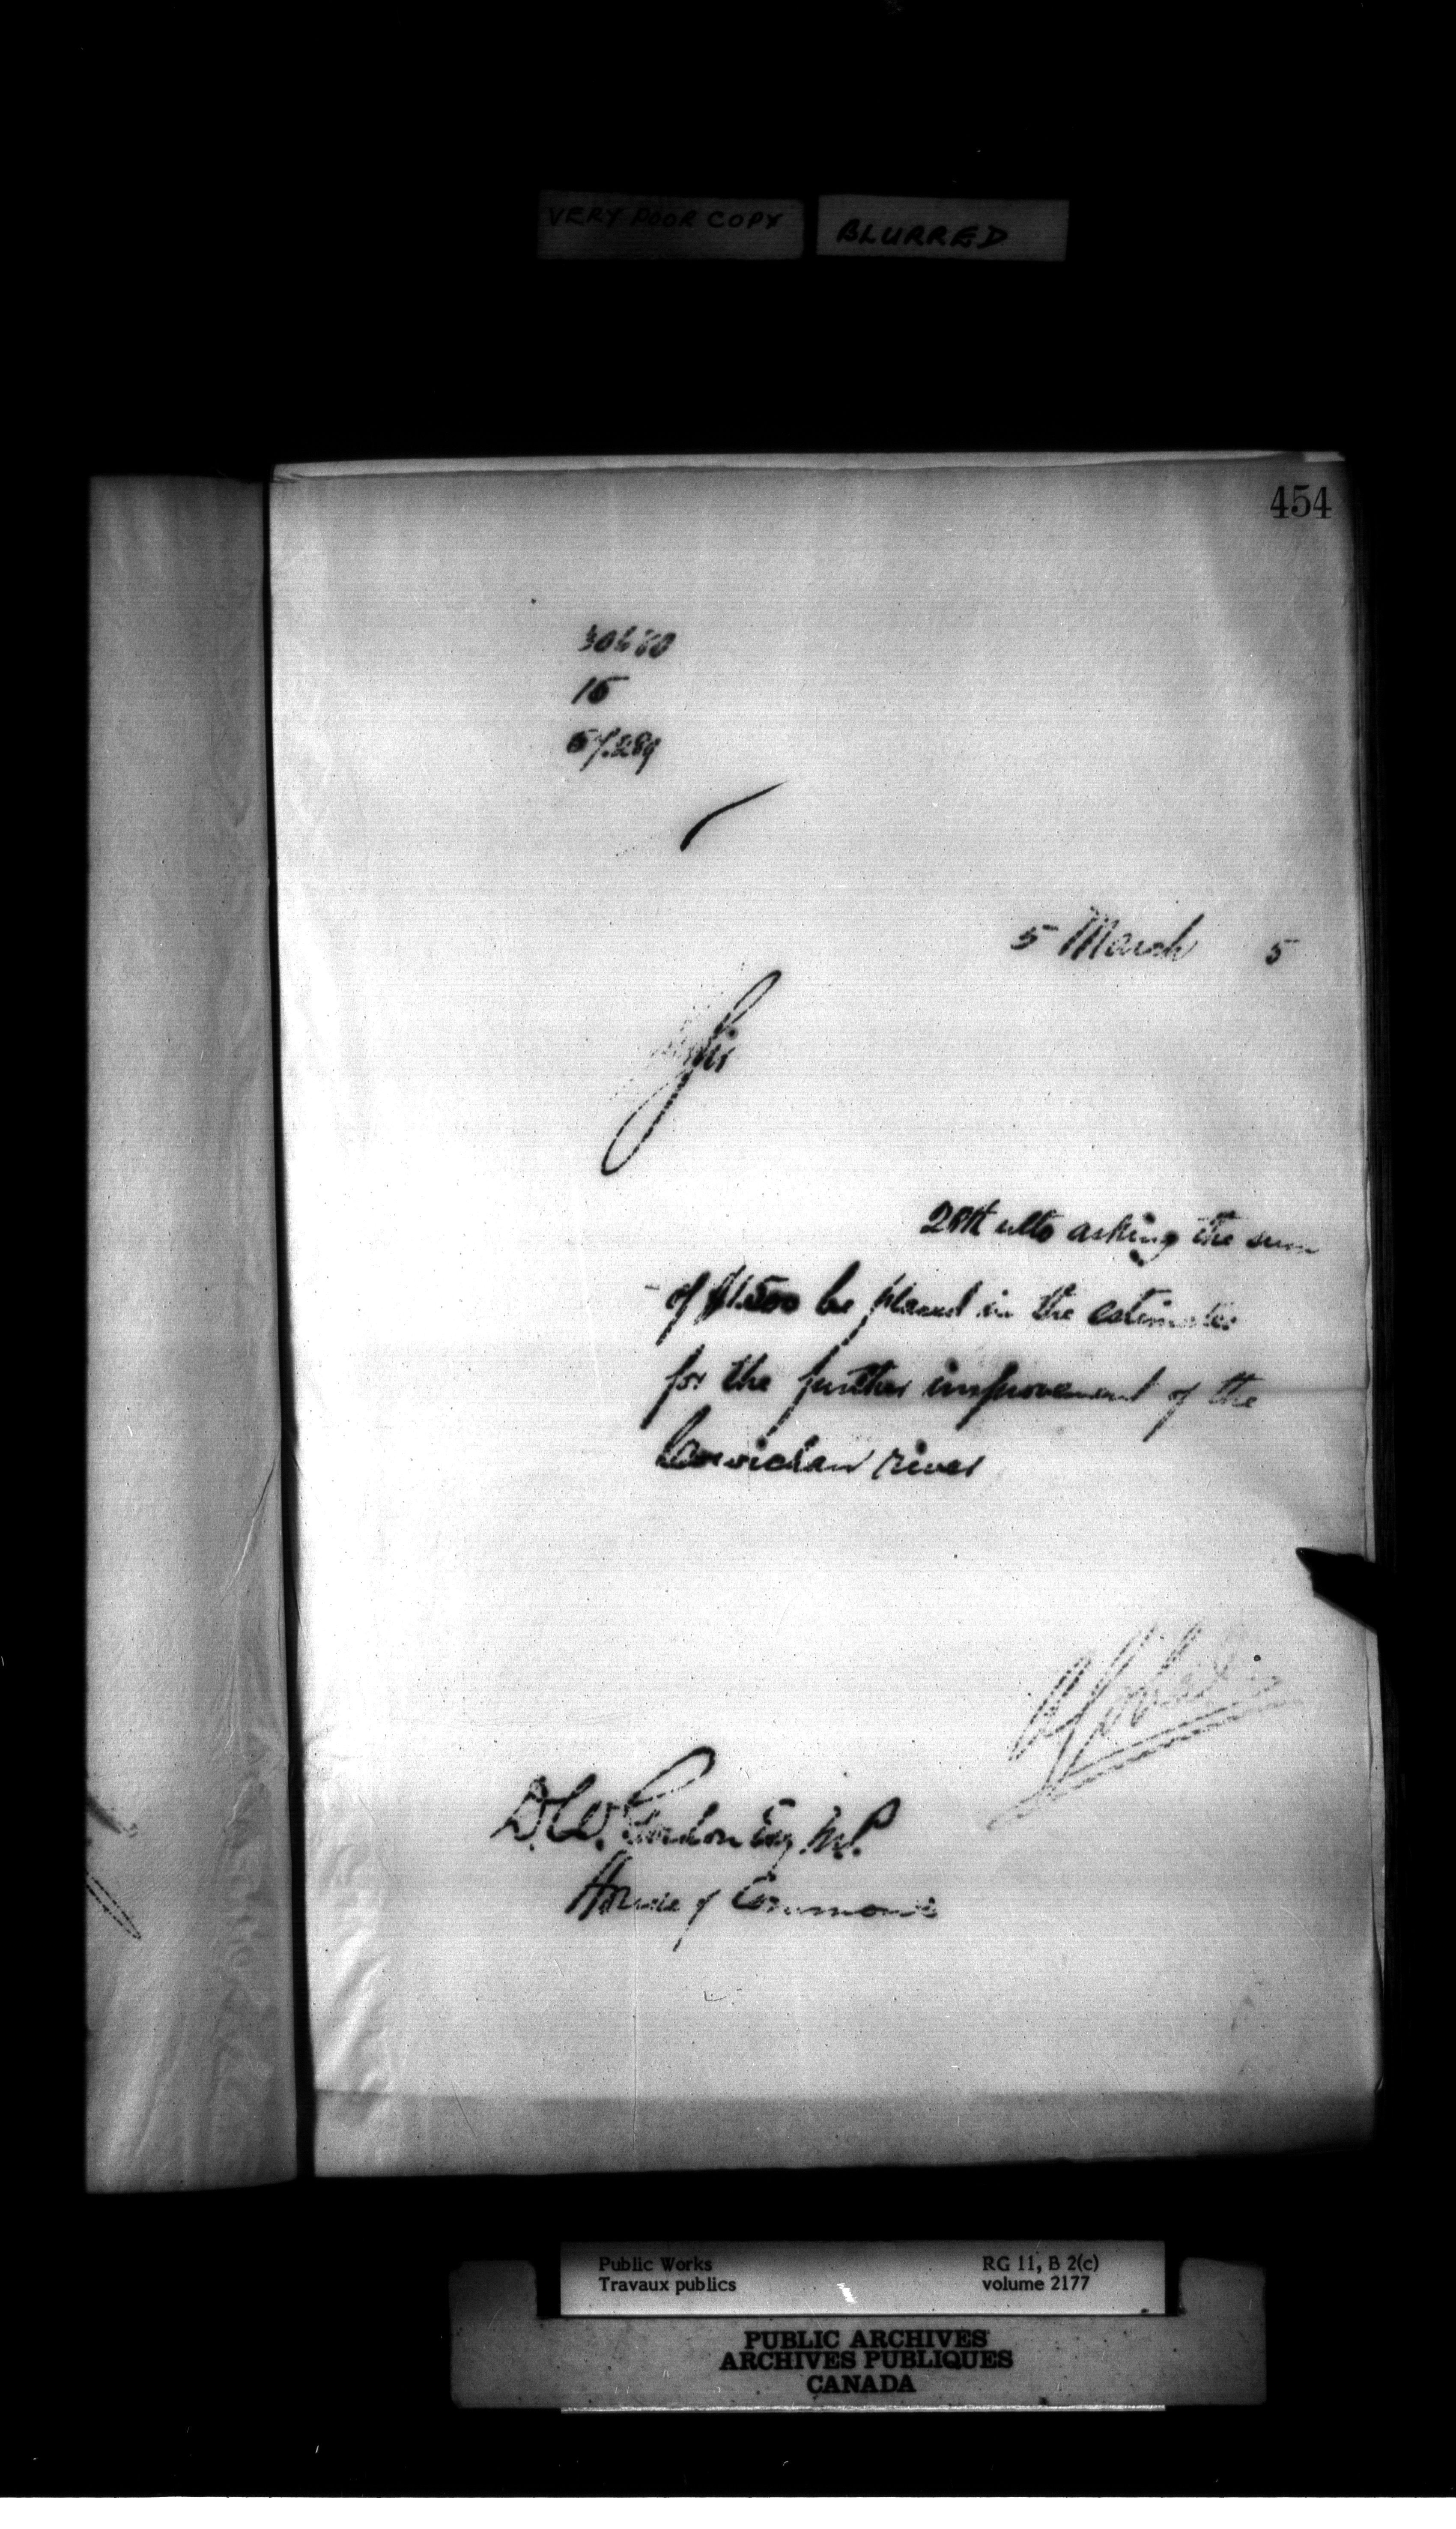 VERY POOR COPY BLURRED
454
15
5 March 5
Sir
28th ulto asking the sum
of $1.500 be placed in the estimates
for the further improvement of the
Cowichan river
D.W. Gordon Esq. M.P.
House of Commons
Public Works RG 11, B 2(c)
Travaux publics volume 2177
PUBLIC ARCHIVES
ARCHIVES PUBLIQUES
CANADA